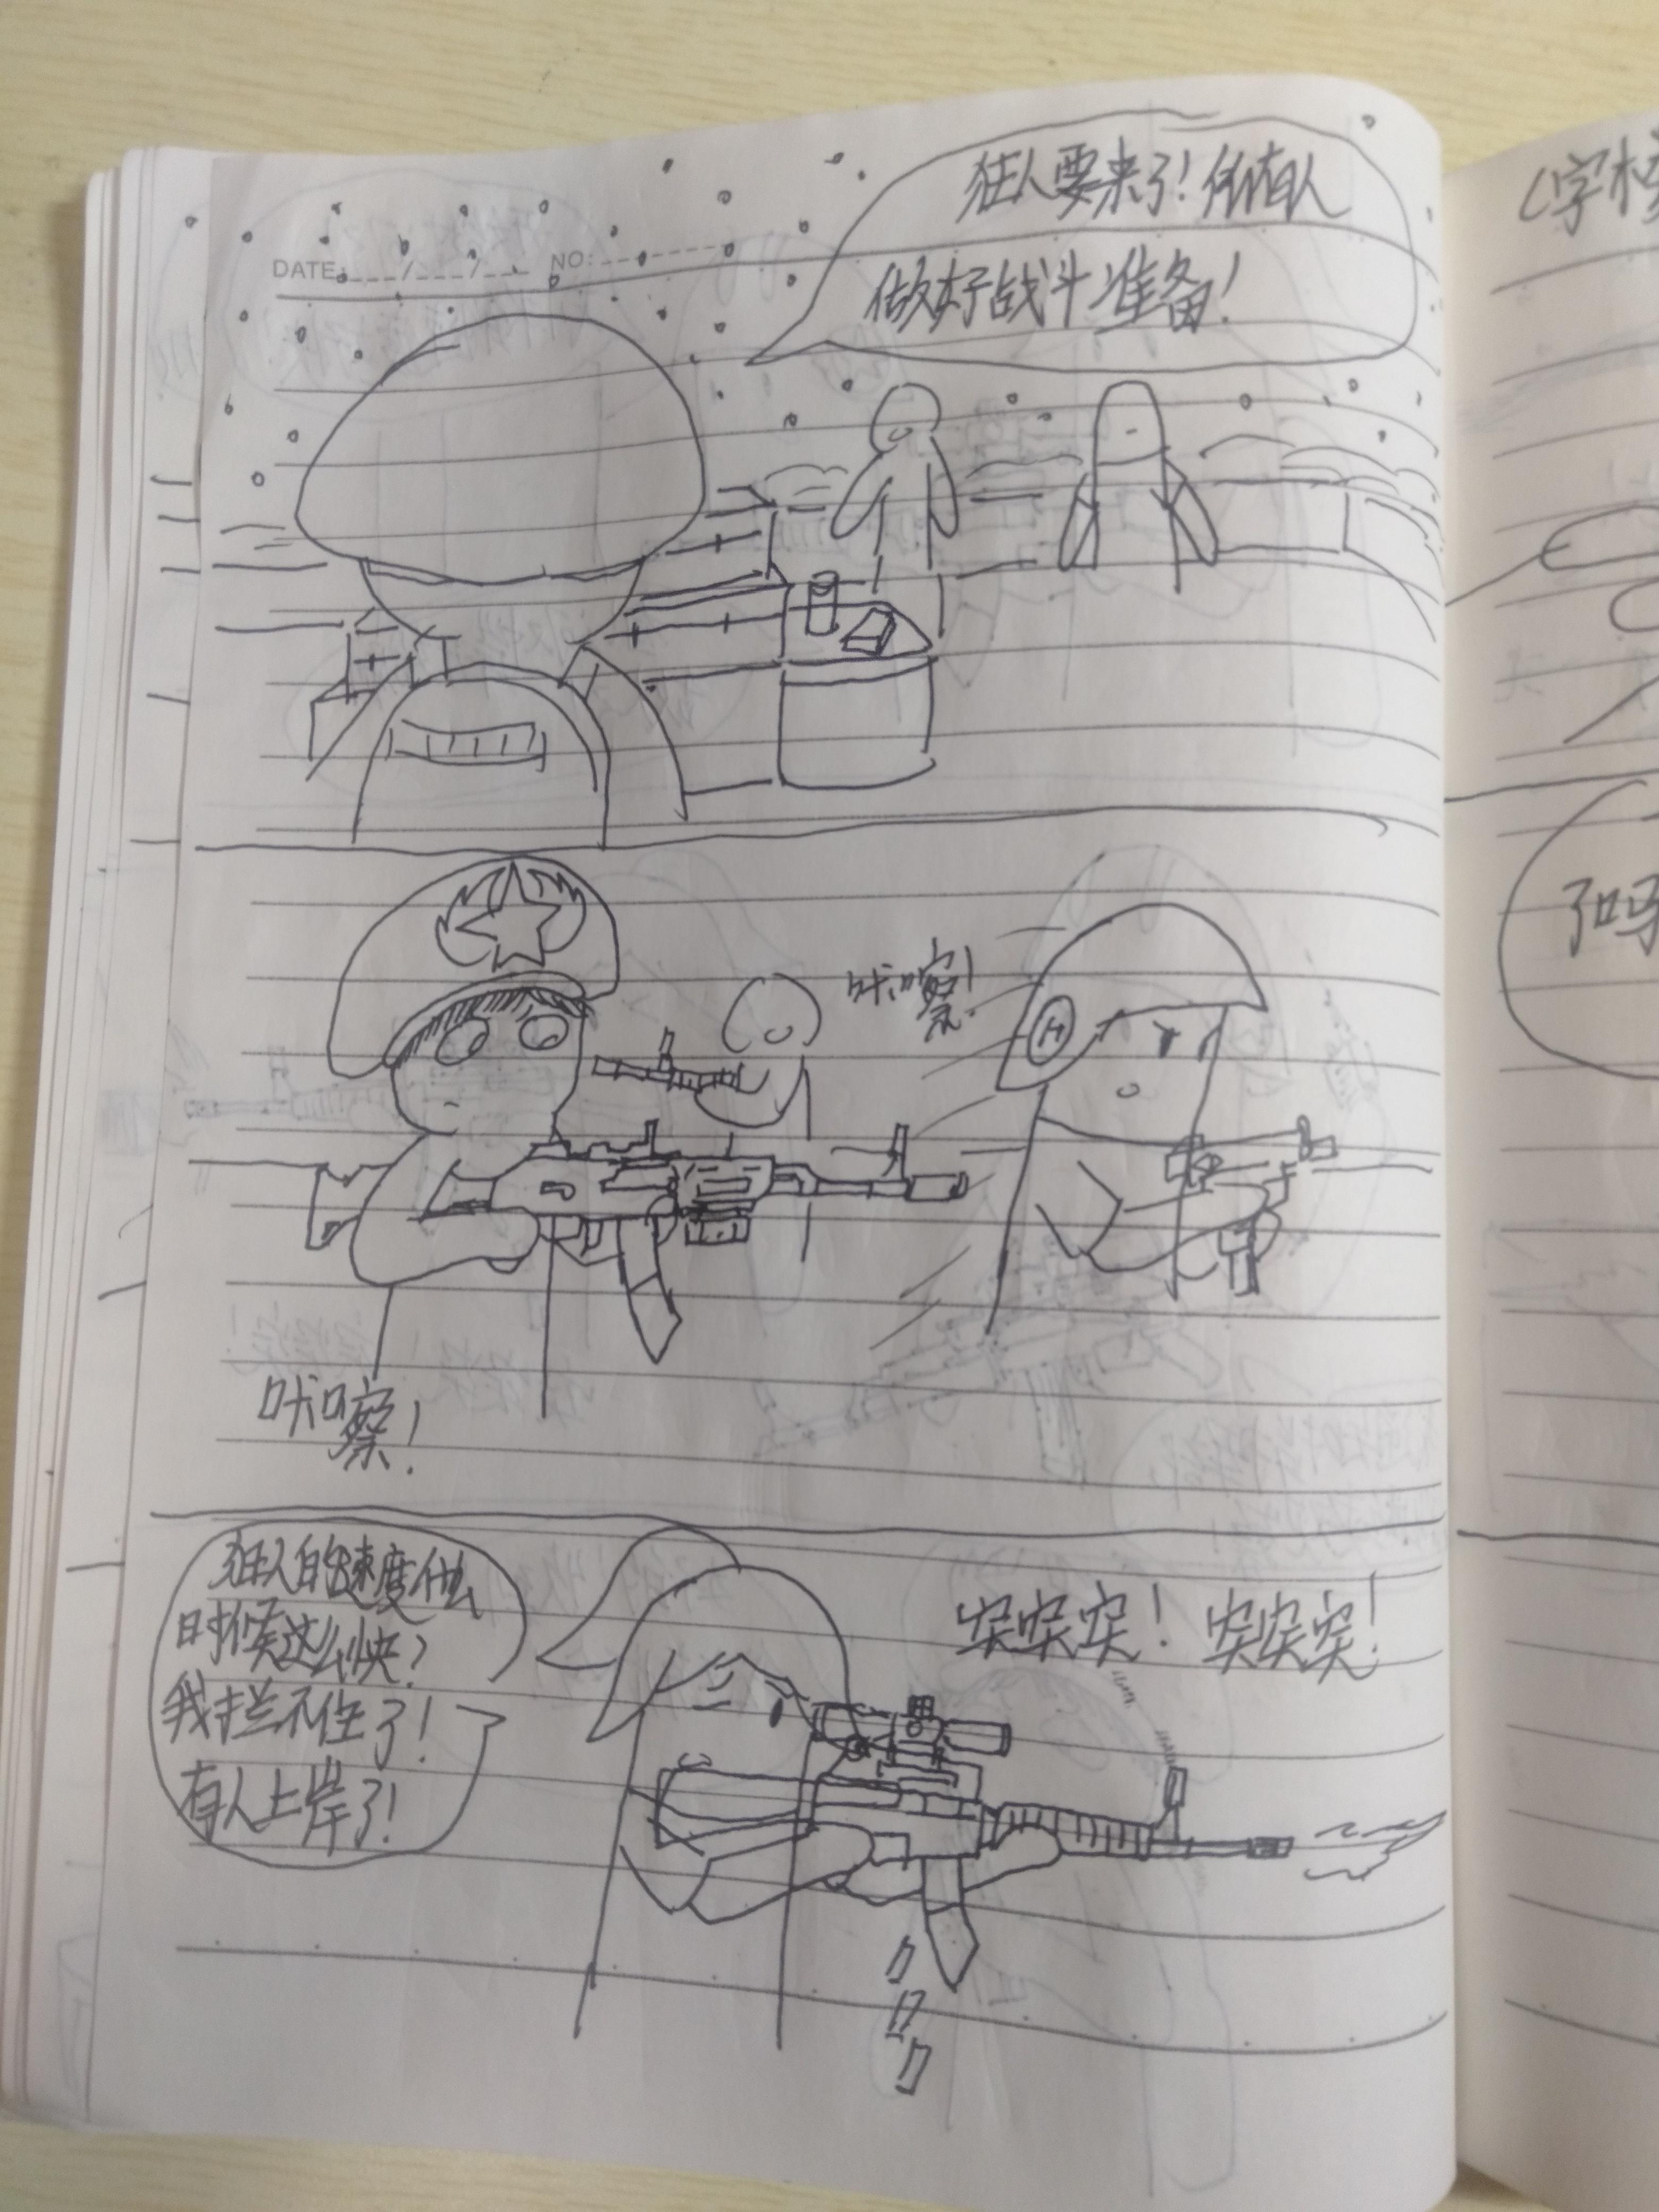 狂人要来了！所有人
做好战斗准备！
DATE: / / NO:
咔嚓！
H
咔嚓！
狂人的速度什么
时候这么快？
我拦不住了！
有人上岸了！
突突突！突突突！
了吗